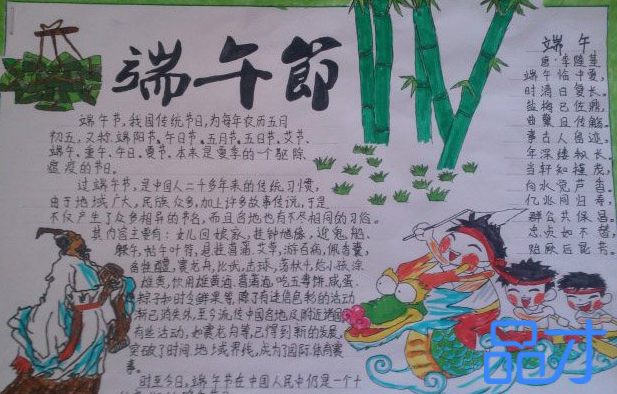 端午節
端午节,我国传统节日,为每年农历五月
初五,又称端阳节、午日节、五月节、五日节、艾节、
端午、重午、午日、夏节,本来是夏季的一个驱除
瘟疫的节日。
过端午节,是中国人二千多年来的传统习惯,
由于地域广大,民族众多,加上许多故事传说,于是
不仅产生了众多相异的节名,而且各地也有不尽相同的习俗。
其内容主要有:女儿回娘家,挂钟馗像,迎鬼船、
躲午,帖午叶符,悬挂菖蒲、艾草,游百病,佩香囊,
备牲醴,赛龙舟,比武,击球,荡秋千,给小孩涂
雄黄,饮用雄黄酒、菖蒲酒,吃五毒饼、咸蛋、
粽子和时令鲜果等,除了有迷信色彩的活动
渐已消失外,至今流传中国各地及附近诸国。
有些活动,如赛龙舟等,已得到新的发展,
突破了时间、地域界线,成为了国际体育赛
事。
时至今日,端午节在中国人民中仍是一个十
端午
唐·李隆基
端午临中夏,
时清日复长。
盐梅已佐鼎,
曲糵且传觞。
事古人留迹,
年深缕积长。
当轩知槿茂,
向水觉芦香。
亿兆同归寿,
群公共保昌。
忠贞如不替,
贻厥后昆芳。
品才